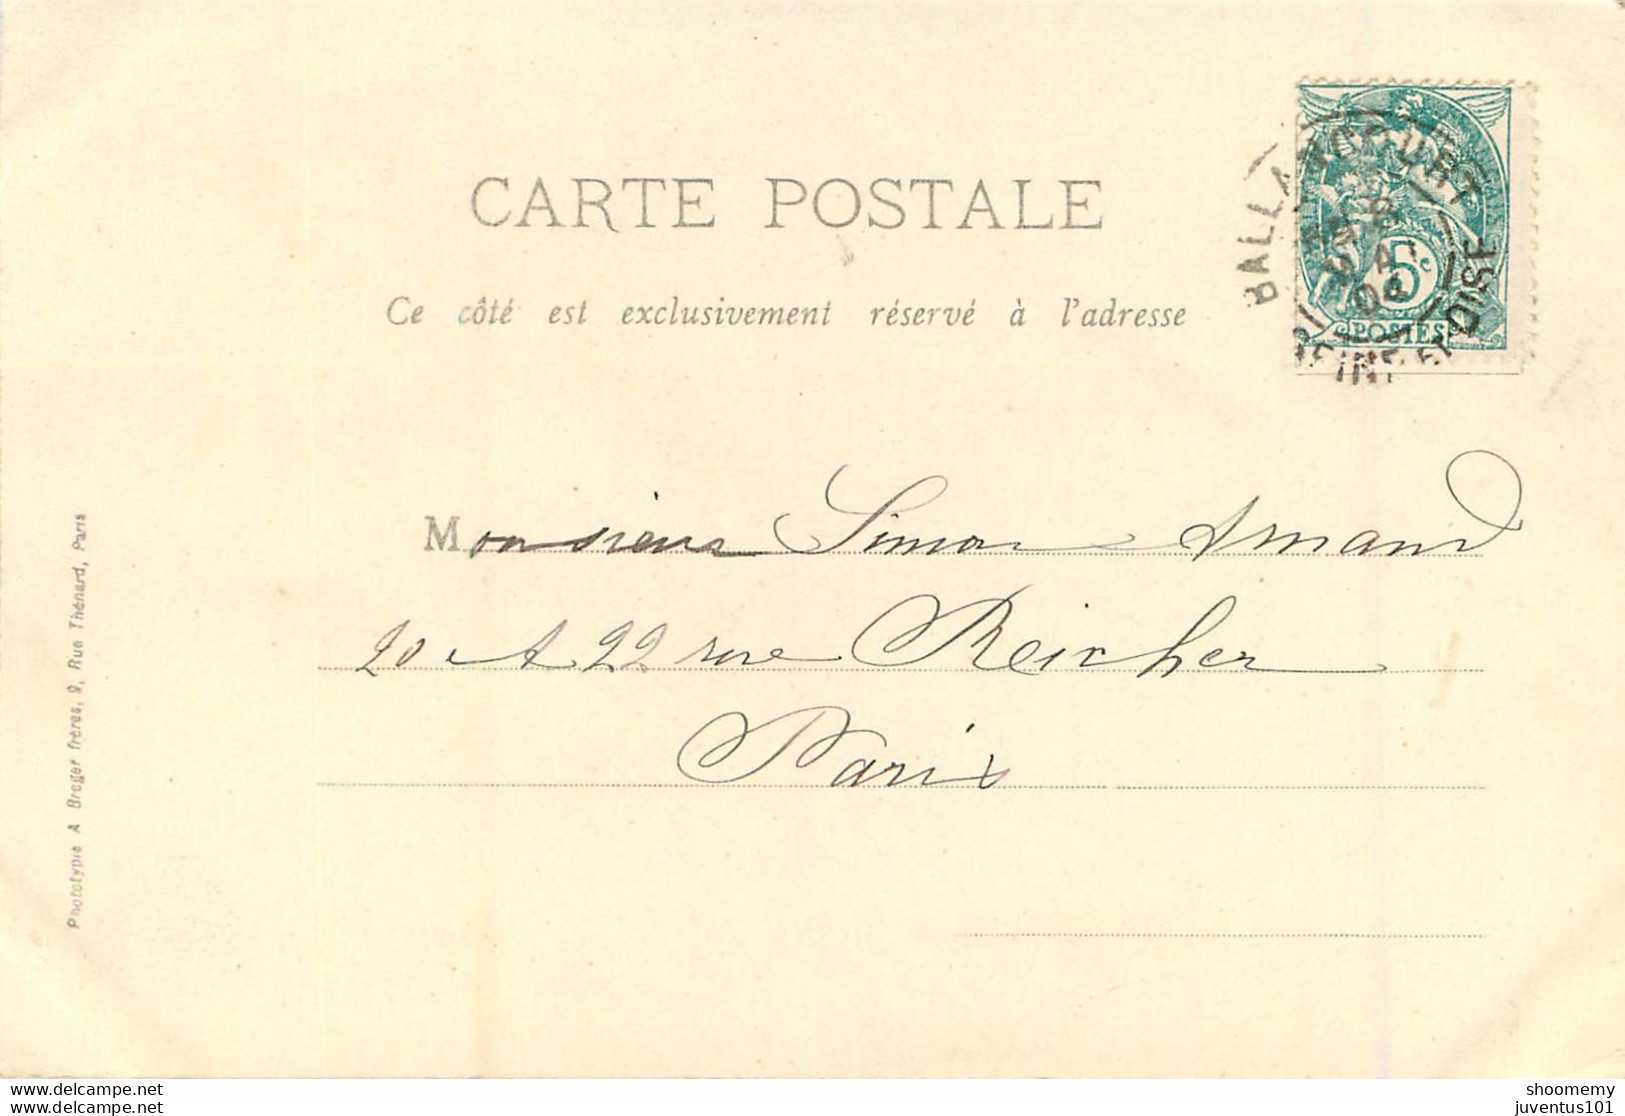 CARTE POSTALE
Ce côté est exclusivement réservé à l'adresse
BALLANCOURT
SEINE ET OISE
5c
POSTES
Monsieur Simon Armand
20 et 22 rue Reicher
Paris
Phototypie A Breger frères, 9, Rue Thénard, Paris
www.delcampe.net
www.delcampe.net
shoomemy
juventus101